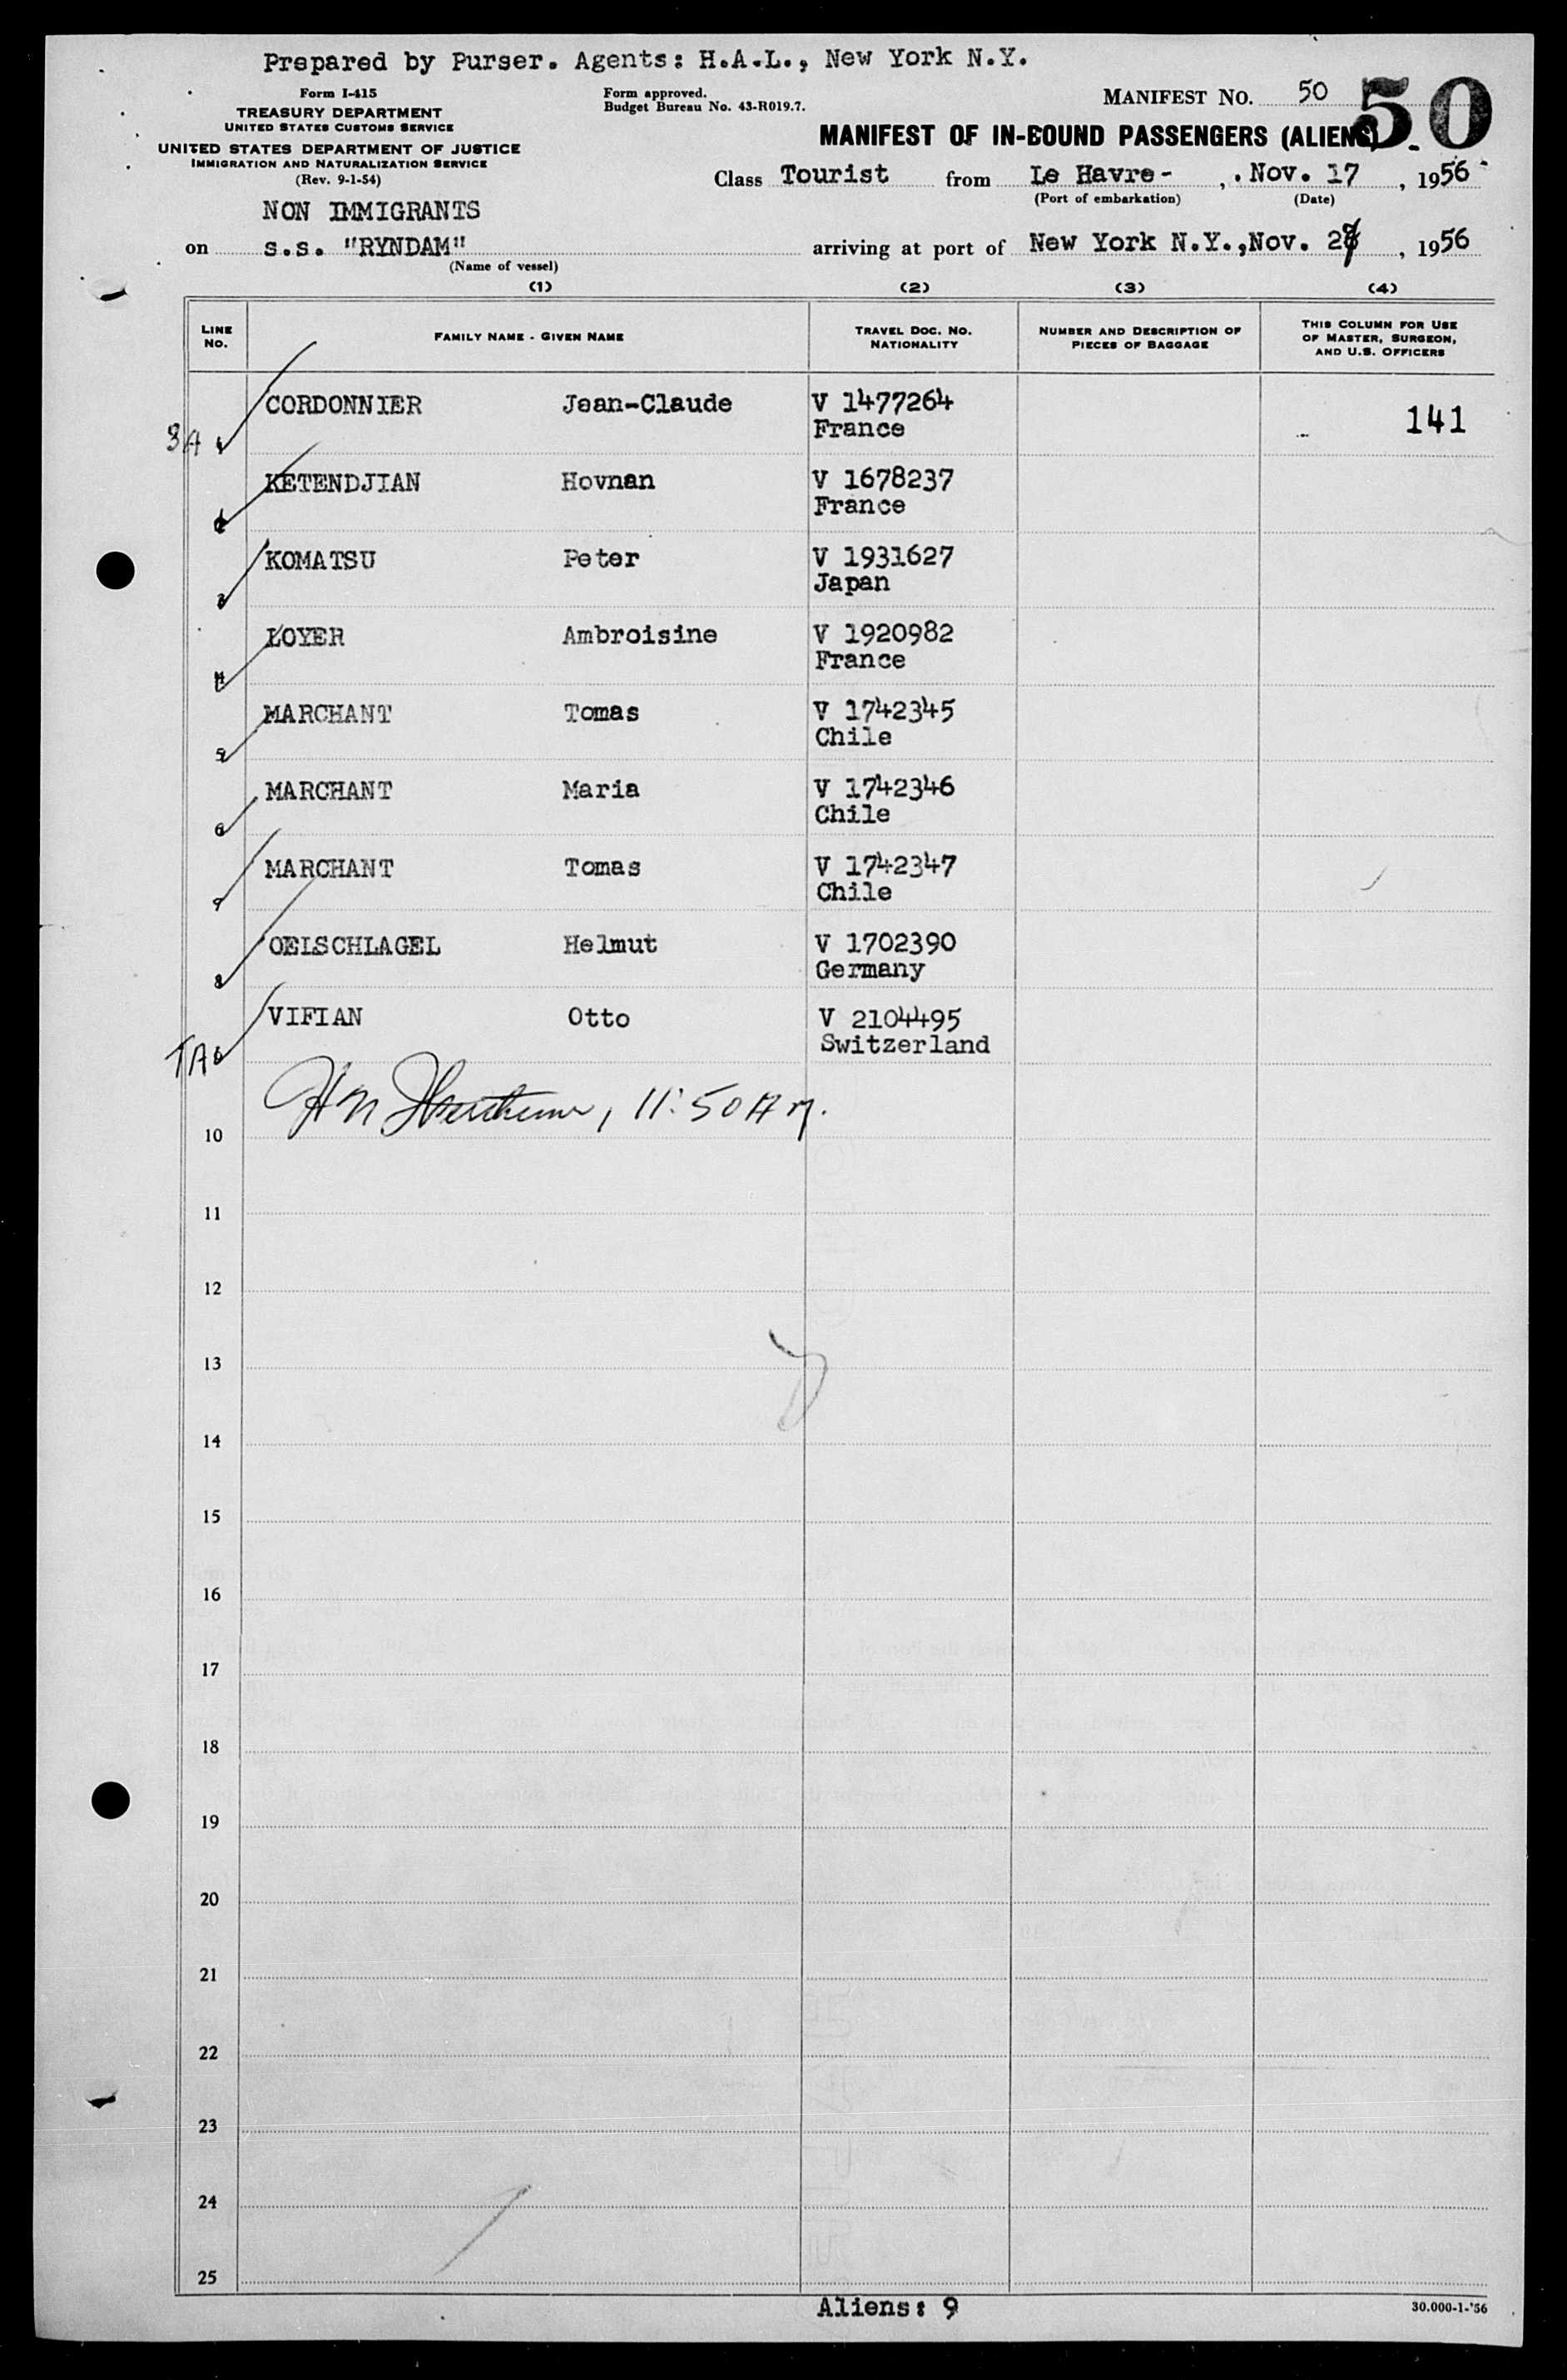 Prepared by Purser. Agents: H.A.L., New York N.Y.
Form I-415
TREASURY DEPARTMENT
UNITED STATES CUSTOMS SERVICE
UNITED STATES DEPARTMENT OF JUSTICE
IMMIGRATION AND NATURALIZATION SERVICE
(Rev. 9-1-54)
Form approved.
Budget Bureau No. 43-R019.7.
MANIFEST NO. 50
50
MANIFEST OF IN-BOUND PASSENGERS (ALIENS)
Class Tourist from Le Havre- , . Nov. 17 , 1956
(Port of embarkation) (Date)
NON IMMIGRANTS
on s.s. "RYNDAM" arriving at port of New York N.Y., Nov. , 1956
(Name of vessel)
(1) (2) (3) (4)
LINE NO.
FAMILY NAME - GIVEN NAME
TRAVEL DOC. NO. NATIONALITY
NUMBER AND DESCRIPTION OF PIECES OF BAGGAGE
THIS COLUMN FOR USE OF MASTER, SURGEON, AND U.S. OFFICERS
CORDONNIER Jean-Claude V 1477264 141
France
KETENDJIAN Hovnan V 1678237
France
KOMATSU Peter V 1931627
3 Japan
LOYER Ambroisine V 1920982
4 France
MARCHANT Tomas V 1742345
5 Chile
MARCHANT Maria V 1742346
6 Chile
MARCHANT Tomas V 1742347
Chile
OELSCHLAGEL Helmut V 1702390
8 Germany
VIFIAN Otto V 2104495
TA Switzerland
11:50 AM.
10
11
12
13
14
15
16
17
18
19
20
21
22
23
24
25
Aliens: 9
30.000-1-'56